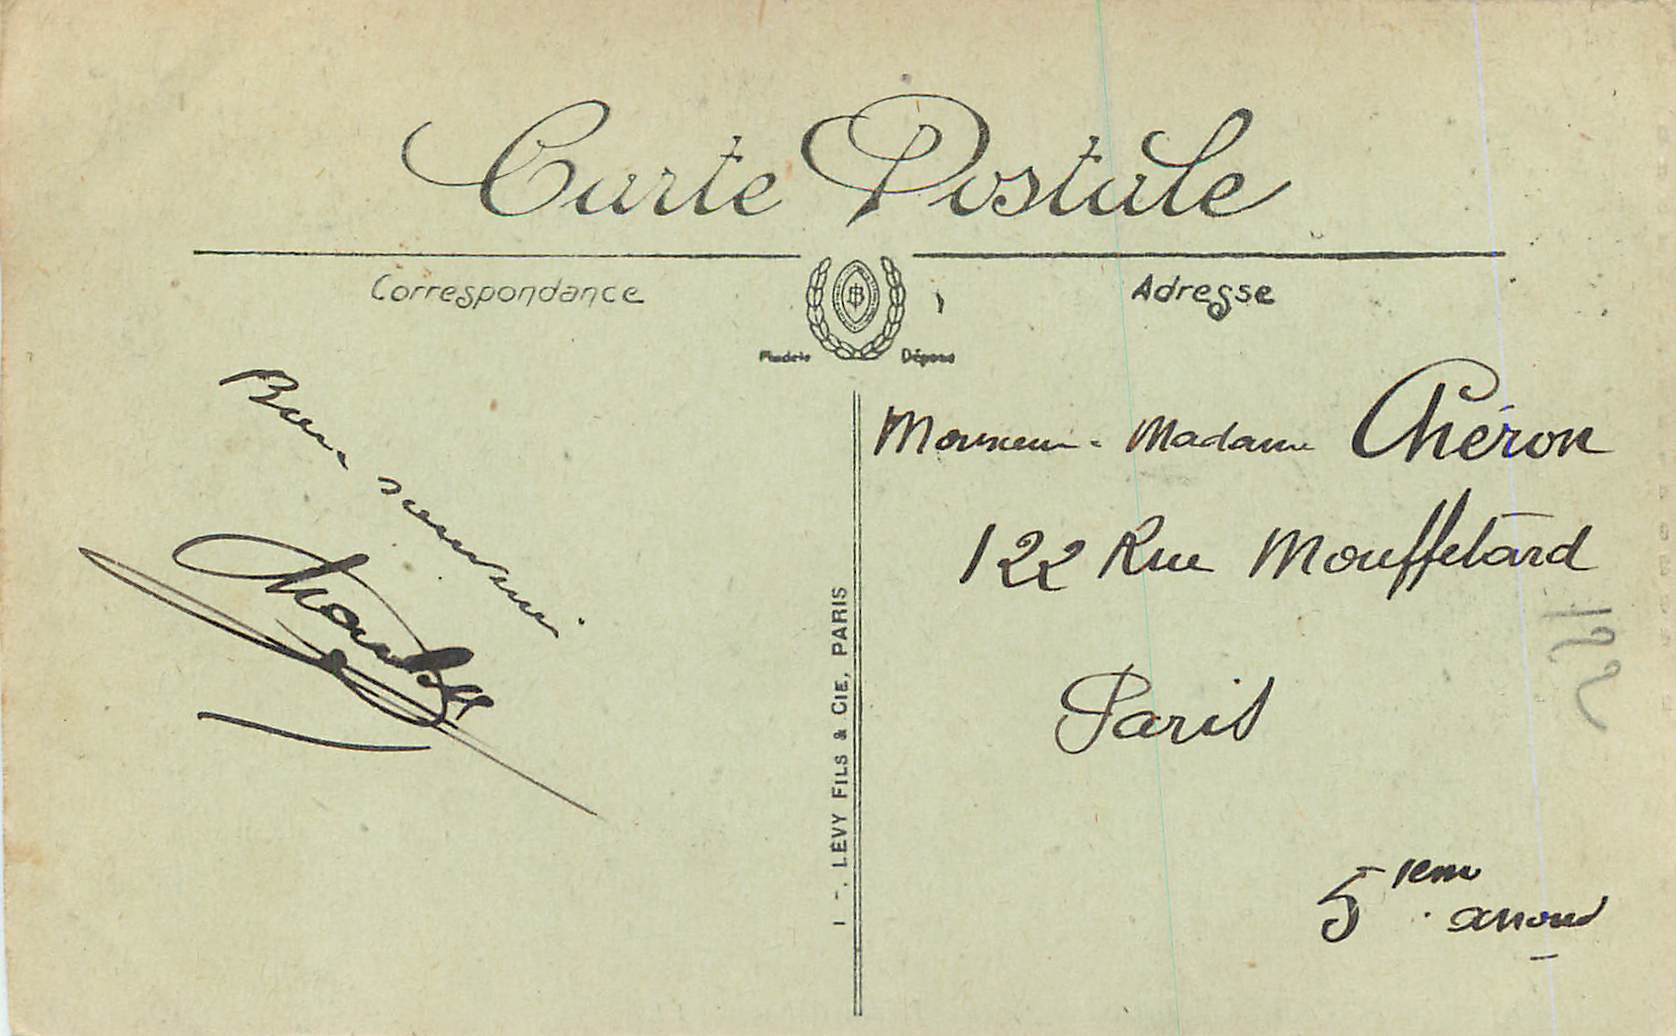 Carte Postale
Correspondance
Adresse
B
Modèle Déposé
Bon souvenir
Monsieur - Madame Chéron
122 Rue Mouffetard
Paris
5ieme arrond
122
1 - LEVY FILS & CIE, PARIS